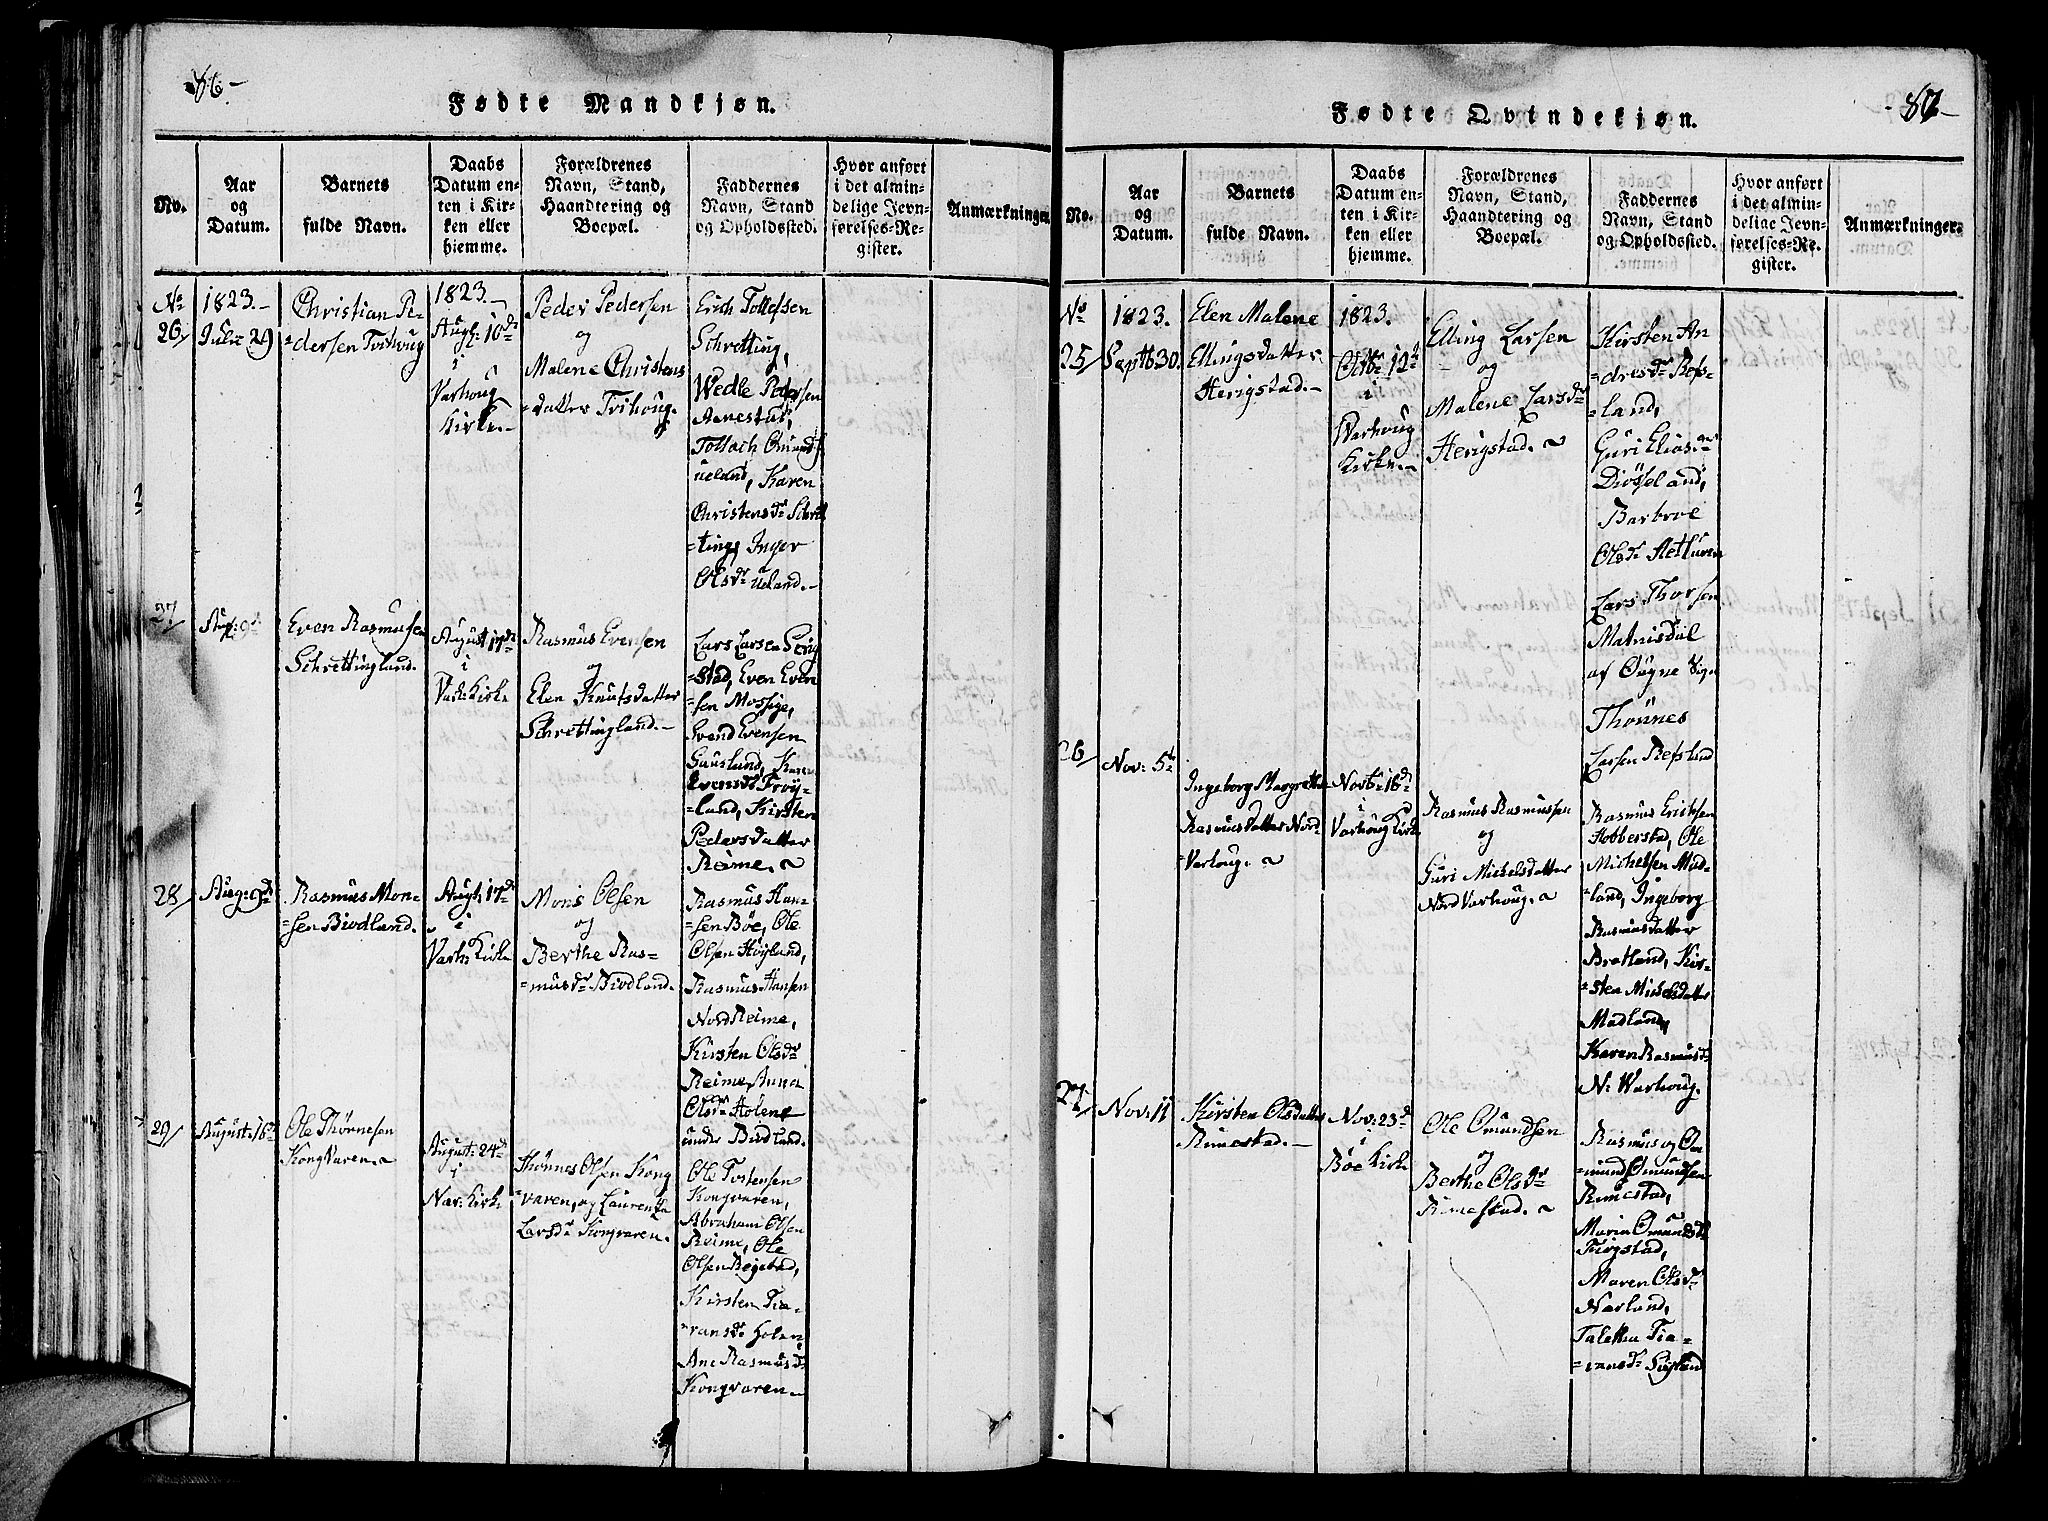 86.
Fødte Mandkjøn.
No.
Aar
og
Datum.
Barnets
fulde Navn.
Daabs
Datum en-
ten i Kir-
ken eller
hjemme.
Forældrenes
Navn, Stand,
Haandtering og
Boepæl.
Faddernes
Navn, Stand
og Opholdssted.
Hvor anført
i det almin-
delige Jevn-
førelses-Re-
gister.
Anmærkninger.
No
26/
1823.-
Julii 29
Christian Pe-
=dersen Tvihoug
1823.-
Augs: 10de
i
Varhoug
Kirke.-
Peder Pedersen
og
Malene Christens
=datter Tvihoug.
Erich Tollefsen
Schretting,
Wedle Pedersen
Aanestad,
Tollach Omunds
ueland, Karen
Christensdr Schret
=ting, Inger
Olsdr Ueland.-
27/
Aug: 9de
Even Rasmusen
Schrettingland.
August 17de
i
Varh: Kirke
Rasmus Evensen
og
Elen Knutsdatter
Schrettingland.-
Lars Larsen
=stad, Even Even
=sen Mossige,
Svend Evensen
Gauslund, Karen
Evensdr Frøy-
=land, Kirsten
Pedersdatter
Reime.
28/
Aug: 9de
Rasmus Mon-
=sen Biodland.
Augs: 17de
i
Varh: Kirke
Mons Olsen
og
Berthe Ras-
=musdr Biodland.
Rasmus Han-
=sen Bøe, Ole
Olsen Høyland,
Rasmus Hansen
Nord Reime,
Kirsten Olsdr
Reime, Anna
Olsdr Holene
under Biodland.
29/
August: 16de
Ole Thørnesen
Kongvaren.
August: 24de
i
Nar: Kirke
Thønnes Olsen Kong
=varen, og Laurentza
Larsdr Kongvaren.
Ole Tostensen
Kongvaren,
Abraham Olsen
Reime, Ole
Olsen Reigstad,
Kirsten Tia-
=ransdr Holen
Ane Rasmusdr
Kongvaren-
- 87-
Fødte Qvindekjøn.
No.
Aar
og
Datum.
Barnets
fulde Navn.
Daabs
Datum en-
ten i Kir-
ken eller
hjemme.
Forældrenes
Navn, Stand,
Haandtering og
Boepæl.
Faddernes
Navn, Stand
og Opholdssted.
Hvor anført
i det almin-
delige Jevn-
førelses-Re-
gister.
Anmærkninger.
No
25/
1823.
Septb 30.
Elen Malene
Ellingsdatter
Herigstad.-
1823.
Octb: 12de
i
Warhoug
Kirke.-
Elling Larsen
og
Malene Larsdr
Herigstad.
Kirsten An
=dresdr Refs-
=land,
Guri Eliasdr
Diøsseland,
Barbroe
Olsdr Aetturen
Lars Thorsen
Matnisdal
af Ougne Sogn
Thønnes
Larsen Refsland
26/
Nov: 5te
Ingeborg Margrethe
Rasmusdatter Nord
=Varhoug.
Novb: 16de
i
Varhoug Kirke
Rasmus Rasmussen
og
Guri Michelsdatter
Nord Varhoug.
Rasmus Erichsen
Hobberstad, Ole
Michelsen Mad-
=land, Ingeborg
Rasmusdatter
Bratland, Kir-
=sten Michelsdatter
Madland,
Karen Rasmusdr
N: Warhoug.
27/
Nov: 11
Kirsten Olsdatter
Rimestad.-
Nov: 23de
i
Bøe Kirke
Ole Omundsen
og
Berthe Olsdr
Rimestad.
Rasmus og Om
=mund Omundsen
Rimestad,
Maria Omundsdr
Tiøgstad,
Maren Olsdr
Nærland,
Talethea Tia-
=ransdr